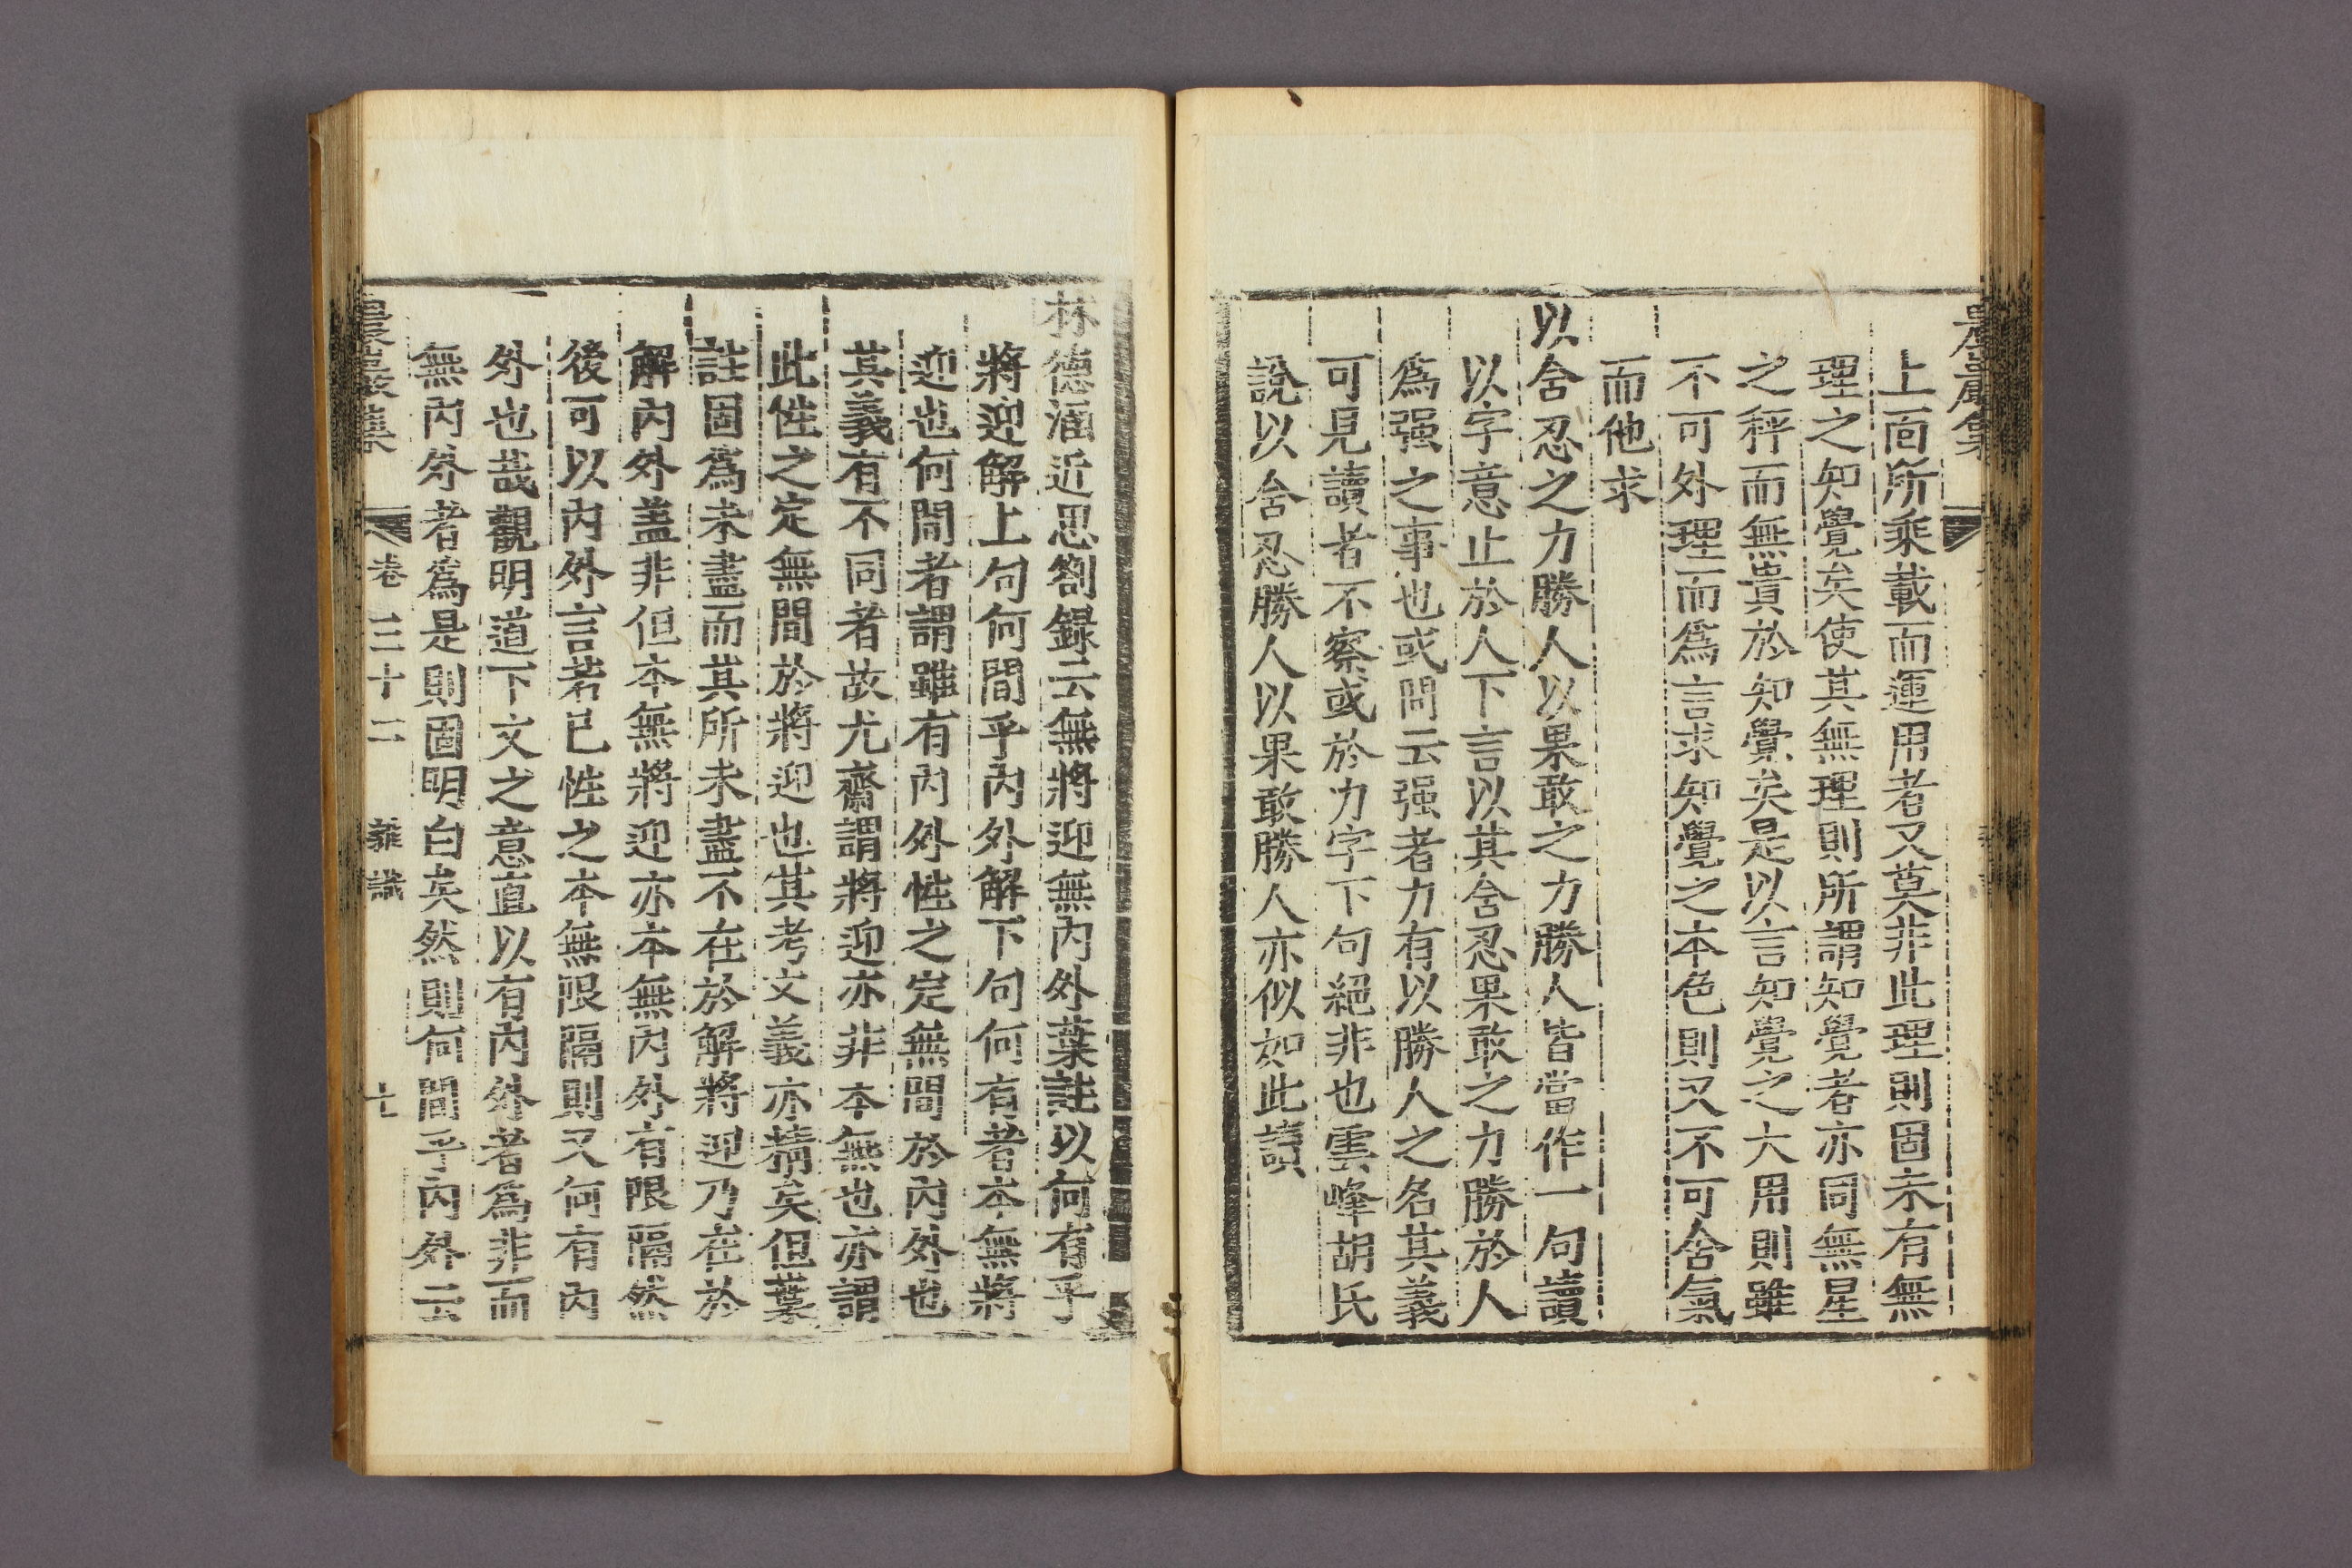 上面所乘載而運用者又莫非此理則固未有無
理之知覺矣使其無理則所謂知覺者亦同無星
之秤而無貴於知覺矣是以言知覺之大用則雖
不可外理而爲言求知覺之本色則又不可舍氣
而他求
以舍忍之力勝人以果敢之力勝人皆當作一句讀
以字意止於人下言以其舍忍果敢之力勝於人
爲强之事也或問云强者力有以勝人之名其義
可見讀者不察或於力字下句絕非也雲峰胡氏
說以舍忍勝人以果敢勝人亦似如此讀
林德涵近思劄錄云無將迎無內外葉註以何有乎
將迎解上句何間乎內外解下句何有者本無將
迎也何間者謂雖有內外性之定無間於內外也
其義有不同者故尤齋謂將迎亦非本無也亦謂
此性之定無間於將迎也其考文義亦精矣但葉
註固爲未盡而其所未盡不在於解將迎乃在於
解內外盖非但本無將迎亦本無內外有限隔然
後可以內外言若已性之本無限隔則又何有內
外也哉觀明道下文之意直以有內外者爲非而
無內外者爲是則固明白矣然則何間乎內外云
巖集 卷三十二 雜識 七